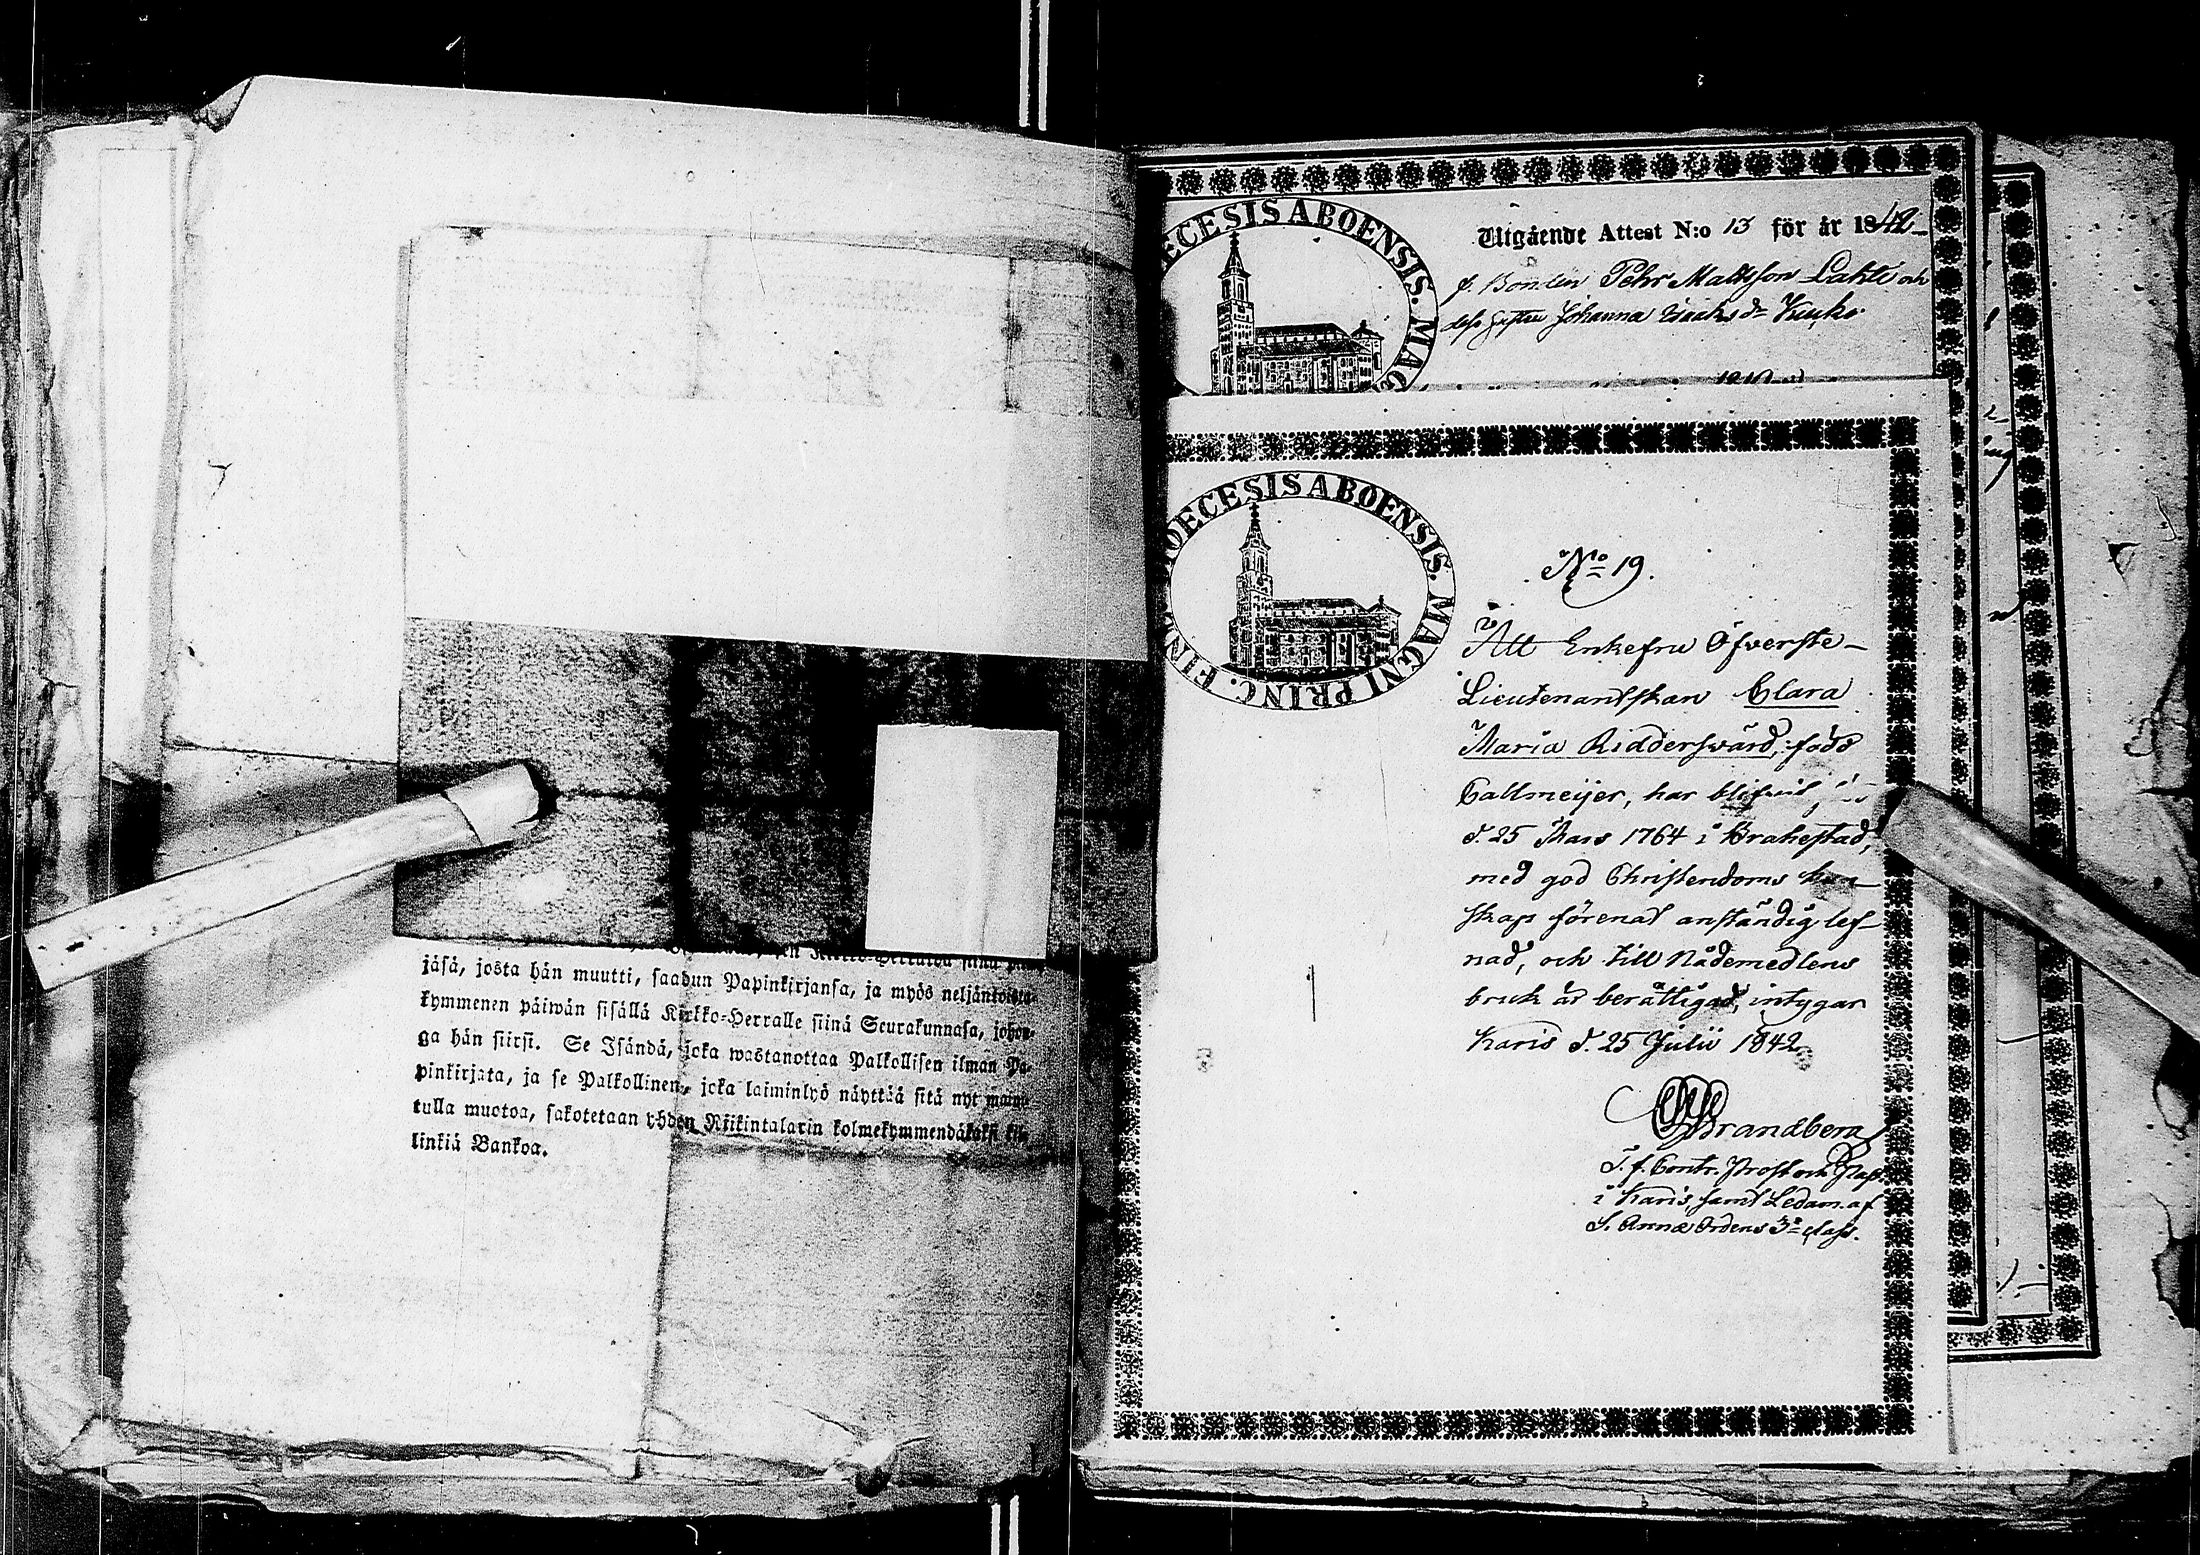 jäsä, josta hän muutti, saadun Papinkirjansa, ja myös neljäntoista-
kymmenen päiwän sisällä Kirkko-Herralle siinä Seurakunnasa, johon-
ga hän siirsi. Se Isändä, joka wastanottaa Palkollisen ilman Pa-
pinkirjata, ja se Palkollinen, joka laiminlyö näyttää sitä nyt
tulla muotoa, sakotetaan yhden Riikintalarin kolmekymmendäkaksi kil-
linkiä Bankoa.
DIOECESIS ABOENSIS. MAG
Utgående Attest N:o 13 för år 1842
f. Bonden Pehr Mattsson Lahti och
dess hustru Johanna Isaks dr
DIOECESIS ABOENSIS. MAGNI PRINC. FIN
No 19.
Att Enkefru Öfverste-
Lieutenantskan Clara
Maria Ridderswärd, född
Callmeijer, har blifvit
d. 25 Mars 1764 i Brahestad,
med god Christendoms kun-
skap förenat anständig lef-
nad, och till Nådemedlens
bruk är berättigad, intygar
Karis d. 25 Julii 1842
Brandberg
T. f. Contr. Prost och Past.
i Karis, samt Ledam. af
S. Annæ Ordens 3e class.